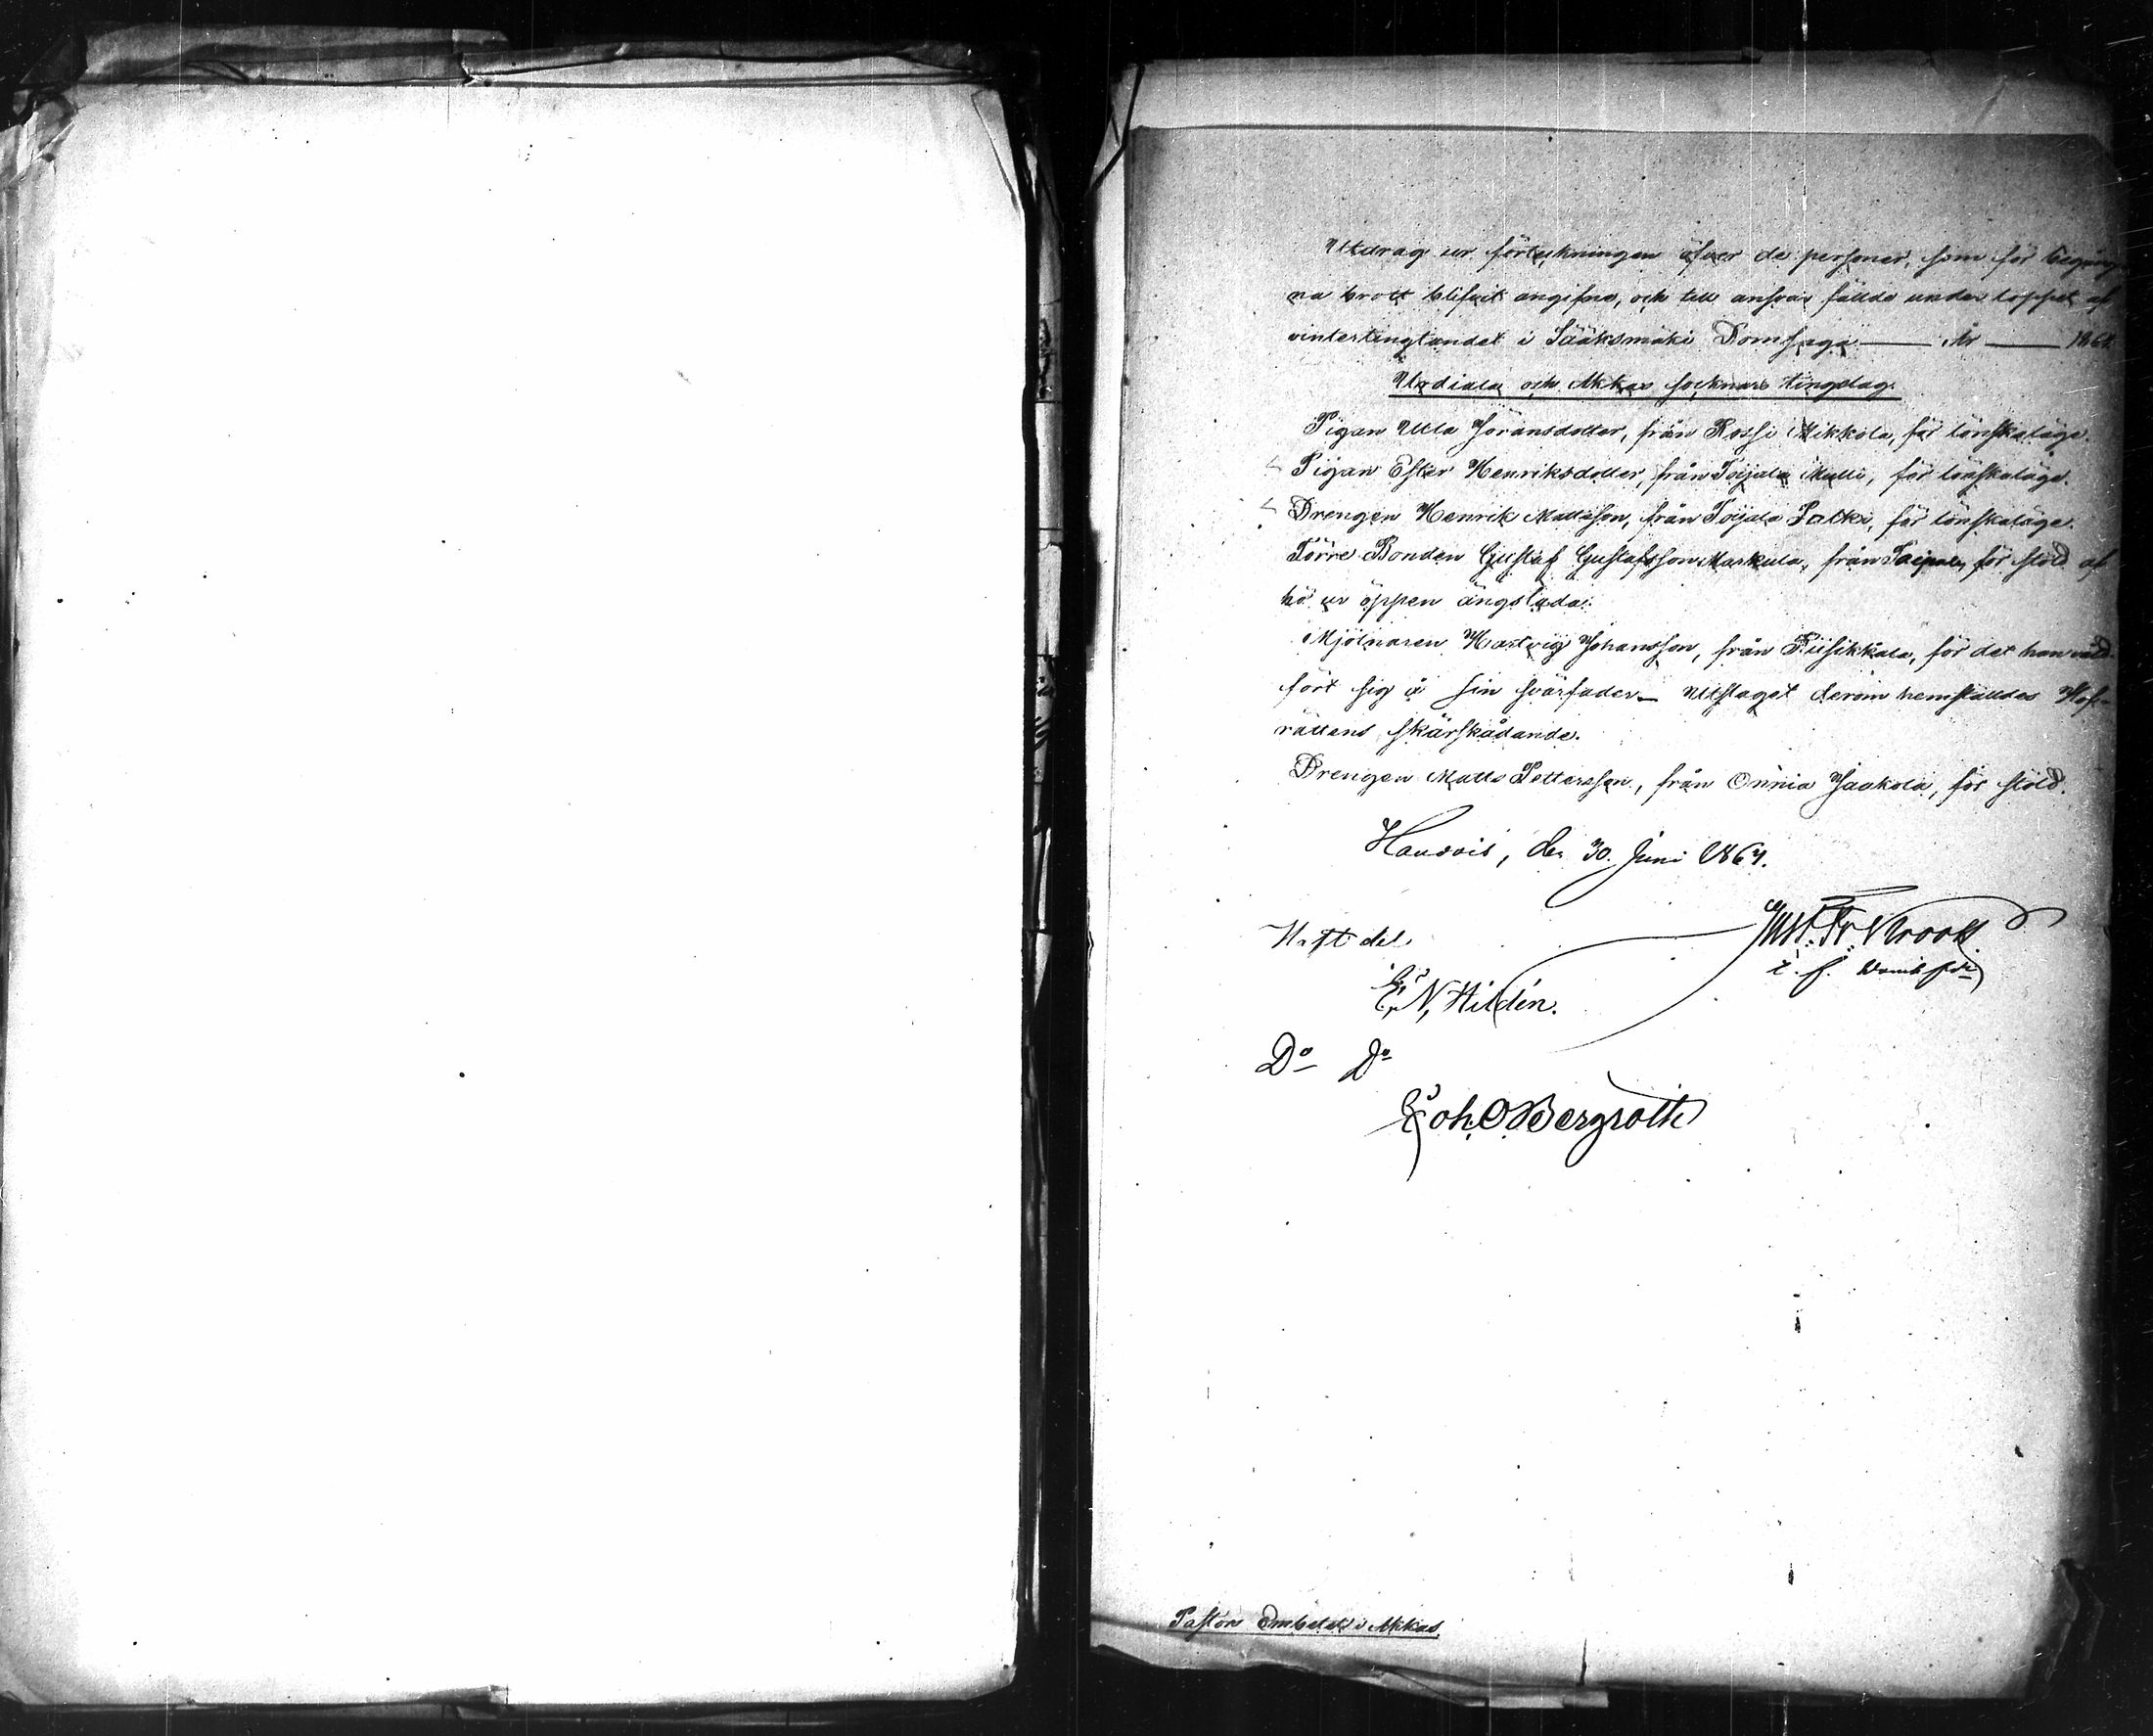 Utdrag ur förteckningen öfver de personer, som för begång-
na brott blifvit angifne, och till ansvar fällde under loppet af
vintertingtundet i Sääksmäki Domsaga — År — 1864.
Urdiala och Akkas socknars tingslag.
Pigan Ulla Jöransdotter, från Kossi Mikkola, för lönskaläge.
Pigan Ester Henriksdotter, från Toijala Mulli, för lönskaläge.
Drengen Henrik Mattsson, från Toijala Salki, för lönskaläge.
Förre Bonden Gustaf Gustafsson Markula, från för stöld af
hö ur öppen ängslada.
Mjölnaren Hartvig Johansson, från Riisikkala, för det han våld-
fört sig å sin svärfader — Utslaget derom hemställdes Hof-
rättens skärskådande.
Drengen Matts Pettersson, från Onnia Jaakola, för stöld.
den 30. Juni 1864.
Gust. Fr. Krook
t. f. Domhfde
E. N. Hildén.
Do Do
Joh. O Bergroth
Pastors Embetet i Akkas.